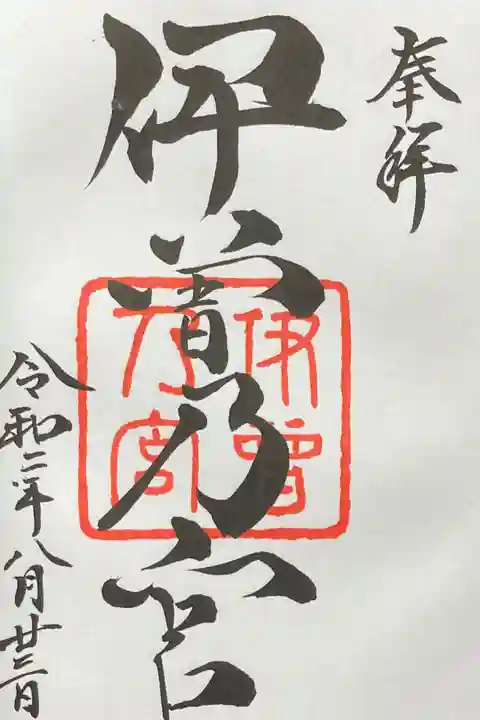 奉拝
伊曽乃宮
伊曽
乃宮
令和二年八月廿三日